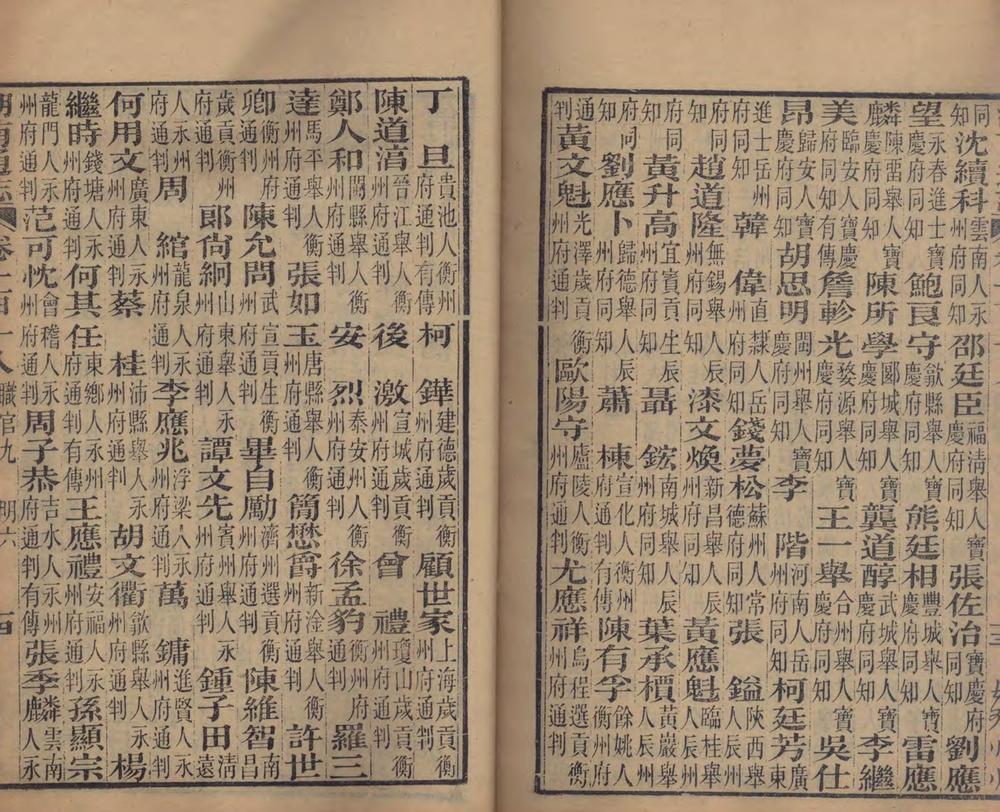 同知沈續科雲南人永州府同知邵廷臣福淸舉人寶慶府同知張佐治寶慶府同知劉應
望永春進士寶慶府同知鮑良守歙縣舉人寶慶府同知熊廷相豐城舉人寶慶府同知雷應
麟陳畱舉人寶慶府同知陳所學郾城舉人寶慶府同知龔道醇武城舉人寶慶府同知李繼
美臨安人寶慶府同知有傳詹軫光婺源舉人寶慶府同知王一舉合州舉人寶慶府同知吳仕
昂歸安人寶慶府同知胡思明閬州舉人寶慶府同知李階河南人岳州府同知柯廷芳廣東
進士岳州府同知韓偉直隸人岳州府同知錢夢松蘇州人常德府同知張鎰陝西舉人辰州
府同知趙道隆無錫舉人辰州府同知漆文煥新昌舉人辰州府同知黃應魁臨桂舉人辰州
府同知黃升高宜賓貢生辰州府同知聶鋐南城舉人辰州府同知葉承槚黃巖舉人辰州
府同知劉應卜歸德舉人辰州府同知蕭棟宣化人衡州府通判有傳陳有孚餘姚人衡州府
通判黃文魁光澤歲貢衡州府通判歐陽守廬陵人衡州府通判尤應祥烏程選貢衡州府通判
丁旦貴池人衡州府通判有傳柯鏵建德歲貢衡州府通判顧世家上海歲貢衡州府通判
陳道淯晉江舉人衡州府通判後激宣城歲貢衡州府通判曾禮瓊山歲貢衡州府通判
鄭人和閩縣舉人衡州府通判安烈泰安州人衡州府通判徐孟豹衡州府通判羅三
達馬平舉人衡州府通判張如玉唐縣舉人衡州府通判簡懋爵新淦舉人衡州府通判許世
卿衡州府通判陳允問武宣貢生衡州府通判畢自勵濟州選貢衡州府通判陳維智南昌
歲貢衡州府通判郞尙絅山東舉人永州府通判譚文先賓州舉人永州府通判鍾子田淸遠
人永州府通判周綰龍泉人永州府通判李應兆浮梁人永州府通判萬鏞進賢人永州府通判
何用文廣東人永州府通判蔡桂沛縣舉人永州府通判胡文衢歙縣舉人永州府通判楊
繼時錢塘人永州府通判何其任東鄉人永州府通判有傳王應禮安福人永州府通判孫顯宗
龍門人永州府通判范可忱會稽人永州府通判周子恭吉水人永州府通判有傳張季麟雲南人永
湖南通志 卷一百十八 職官九 明六 四